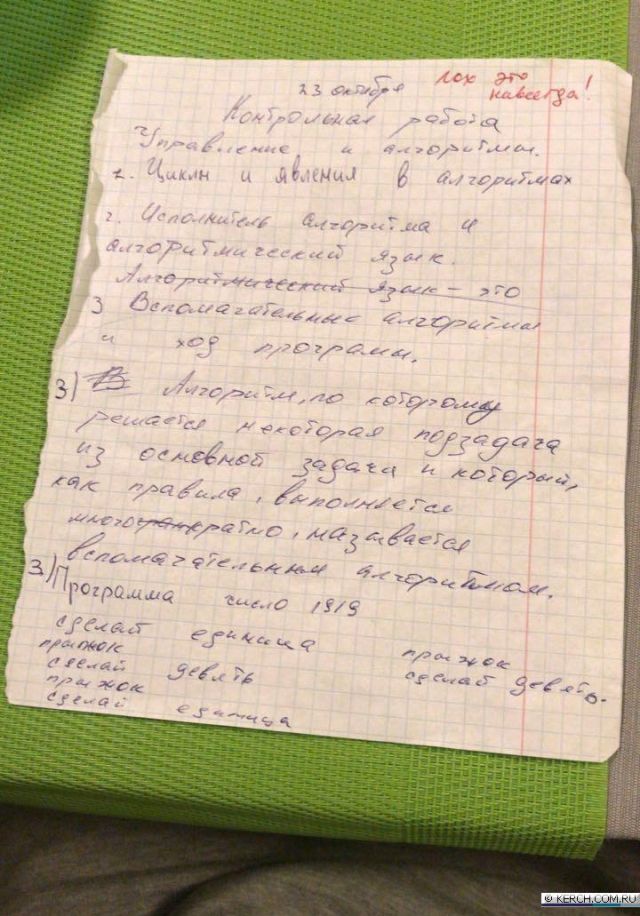 23 октября
лох это
навсегда!
Контрольная работа
Управление и алгоритмы.
1. Циклы и явления в алгоритмах
2. Исполнитель алгоритма и
алгоритмический язык.
Алгоритмический язык - это
3 Вспомагательные алгоритмы
и ход программы.
3) Алгоритм, по которому
решается некоторая подзадача
из основной задачи и который,
как правила, выполняется
многократно, называется
вспомагательным алгоритмом.
3) Программа число 1919
сделай единица
прыжок
сделай девять
прыжок
сделай единица
прыжок
сделай девять.
© KERCH.COM.RU